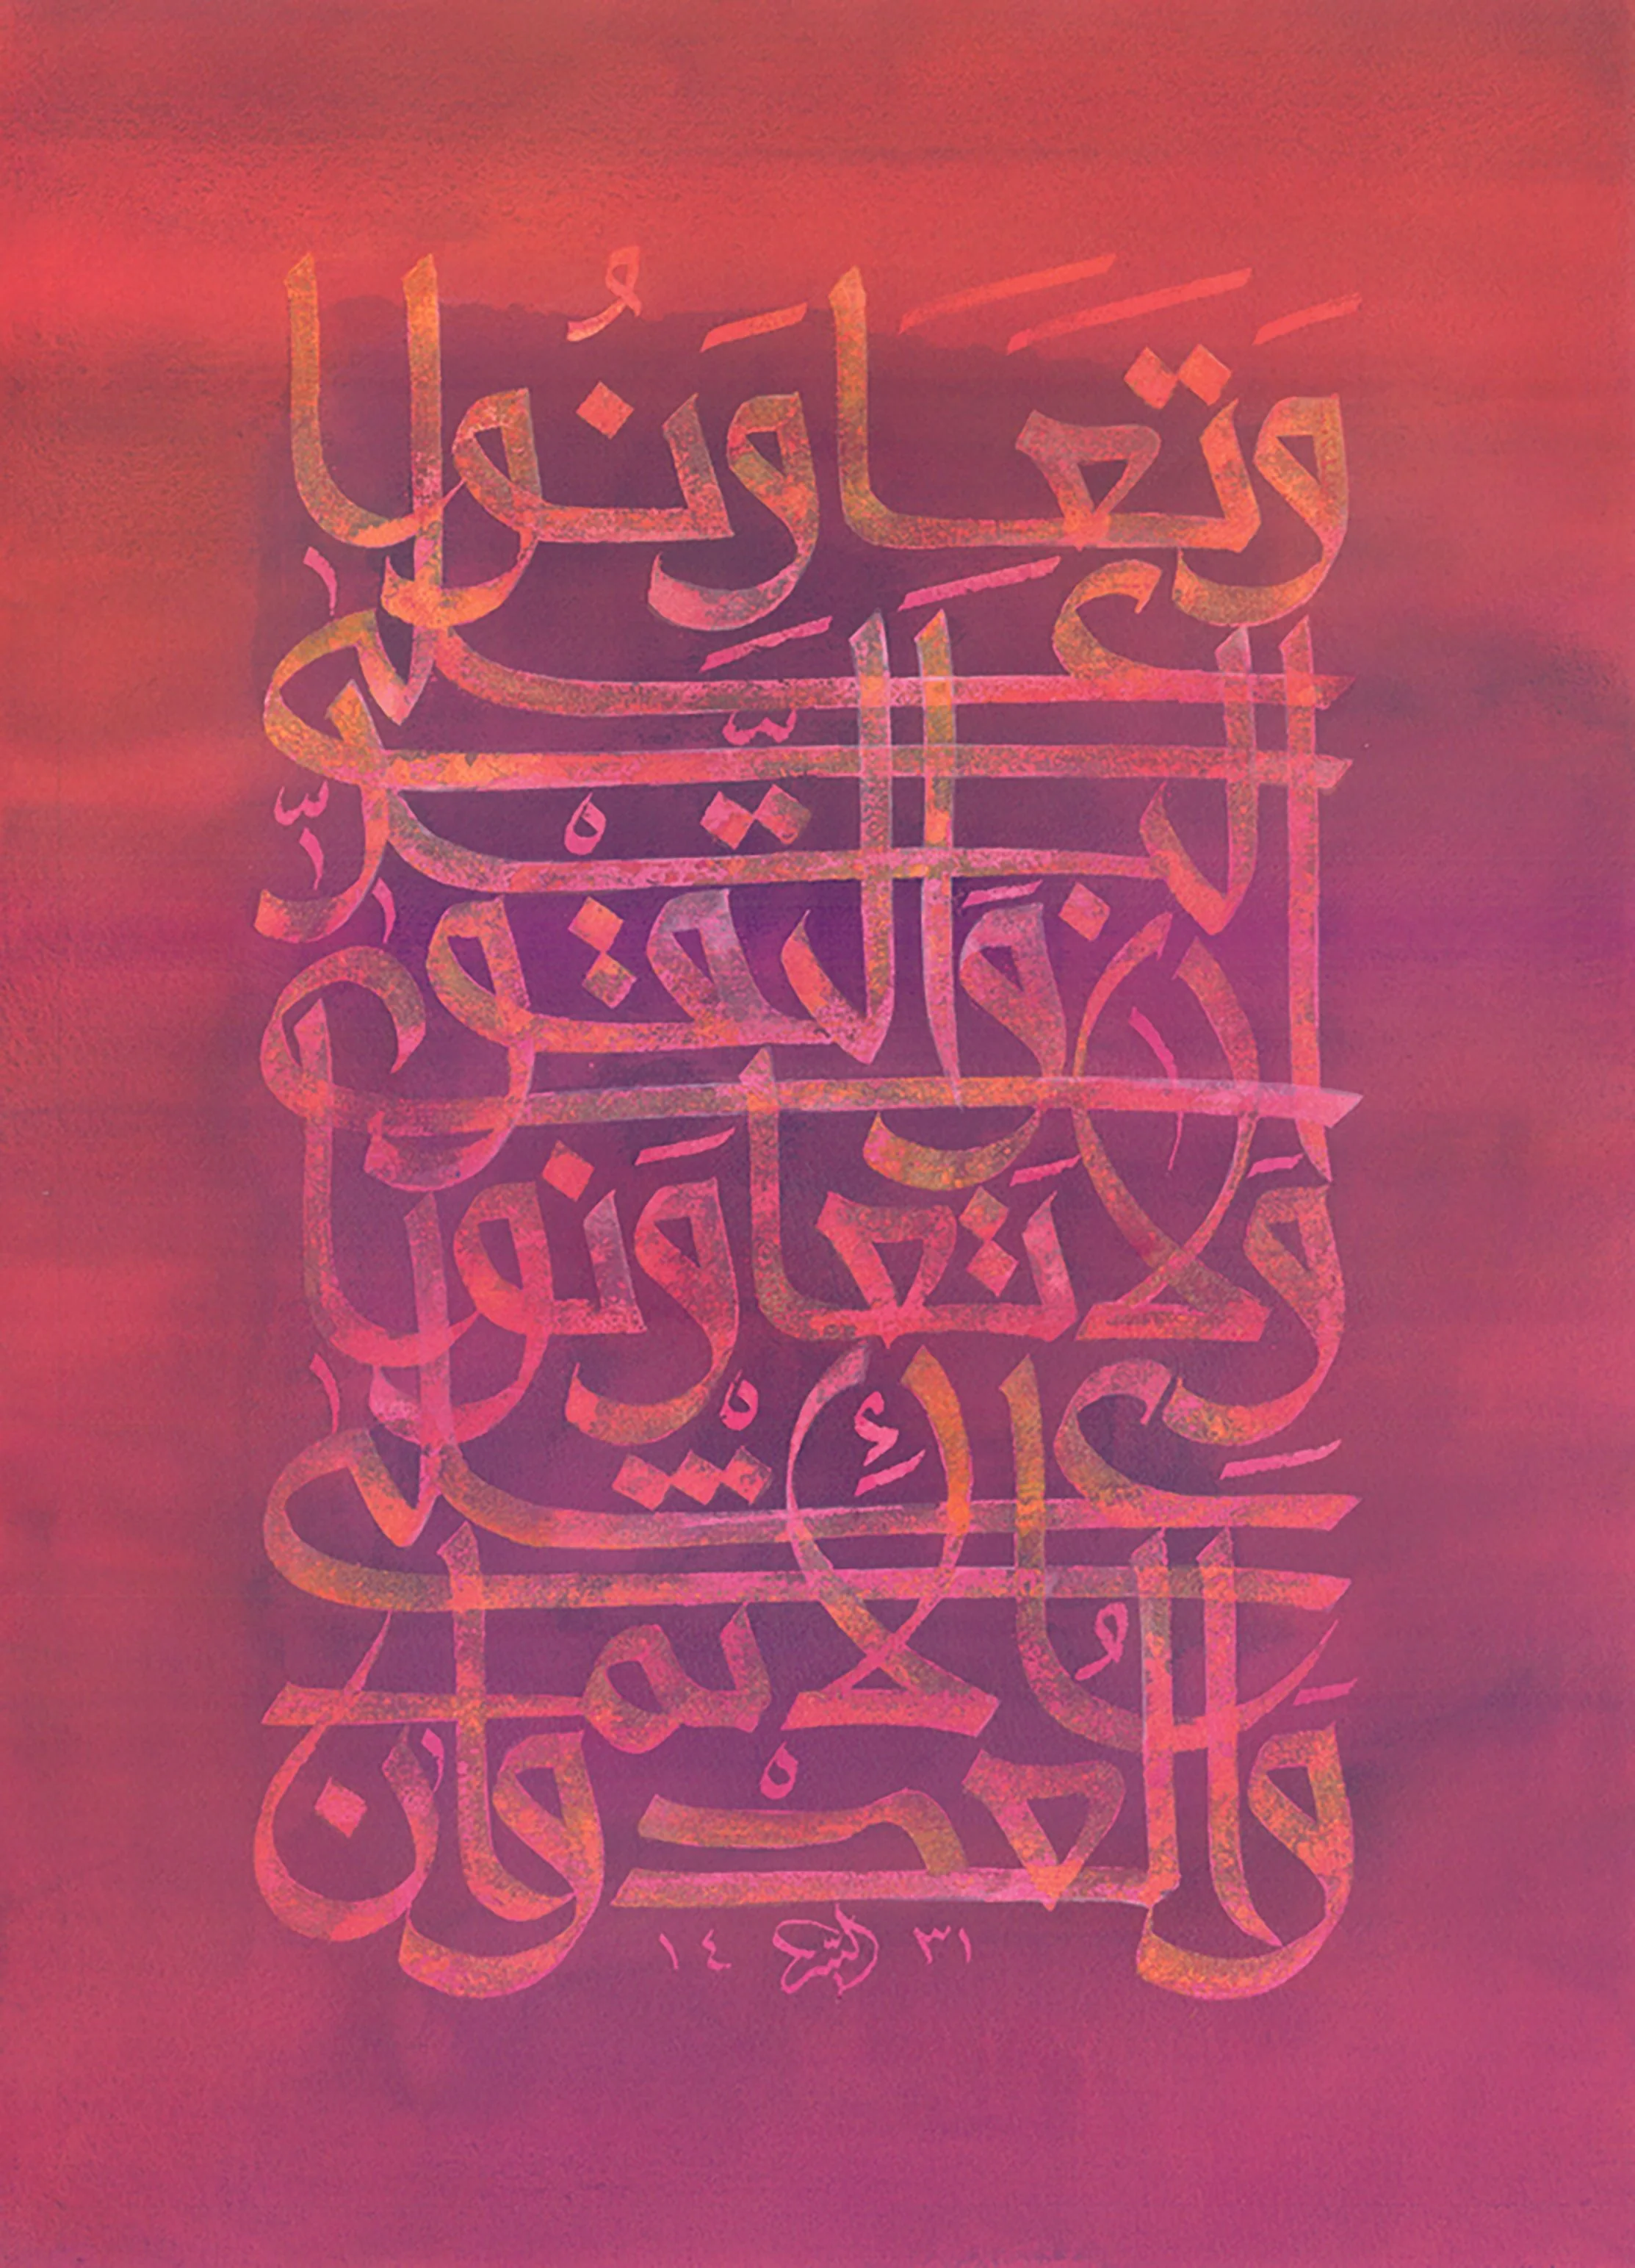 وَتَعَاوَنُوا
عَلَى
الْبِرِّ
وَالتَّقْوَىٰ
وَلَا تَعَاوَنُوا
عَلَى
الْإِثْمِ
وَالْعُدْوَانِ
١٤ ٣١